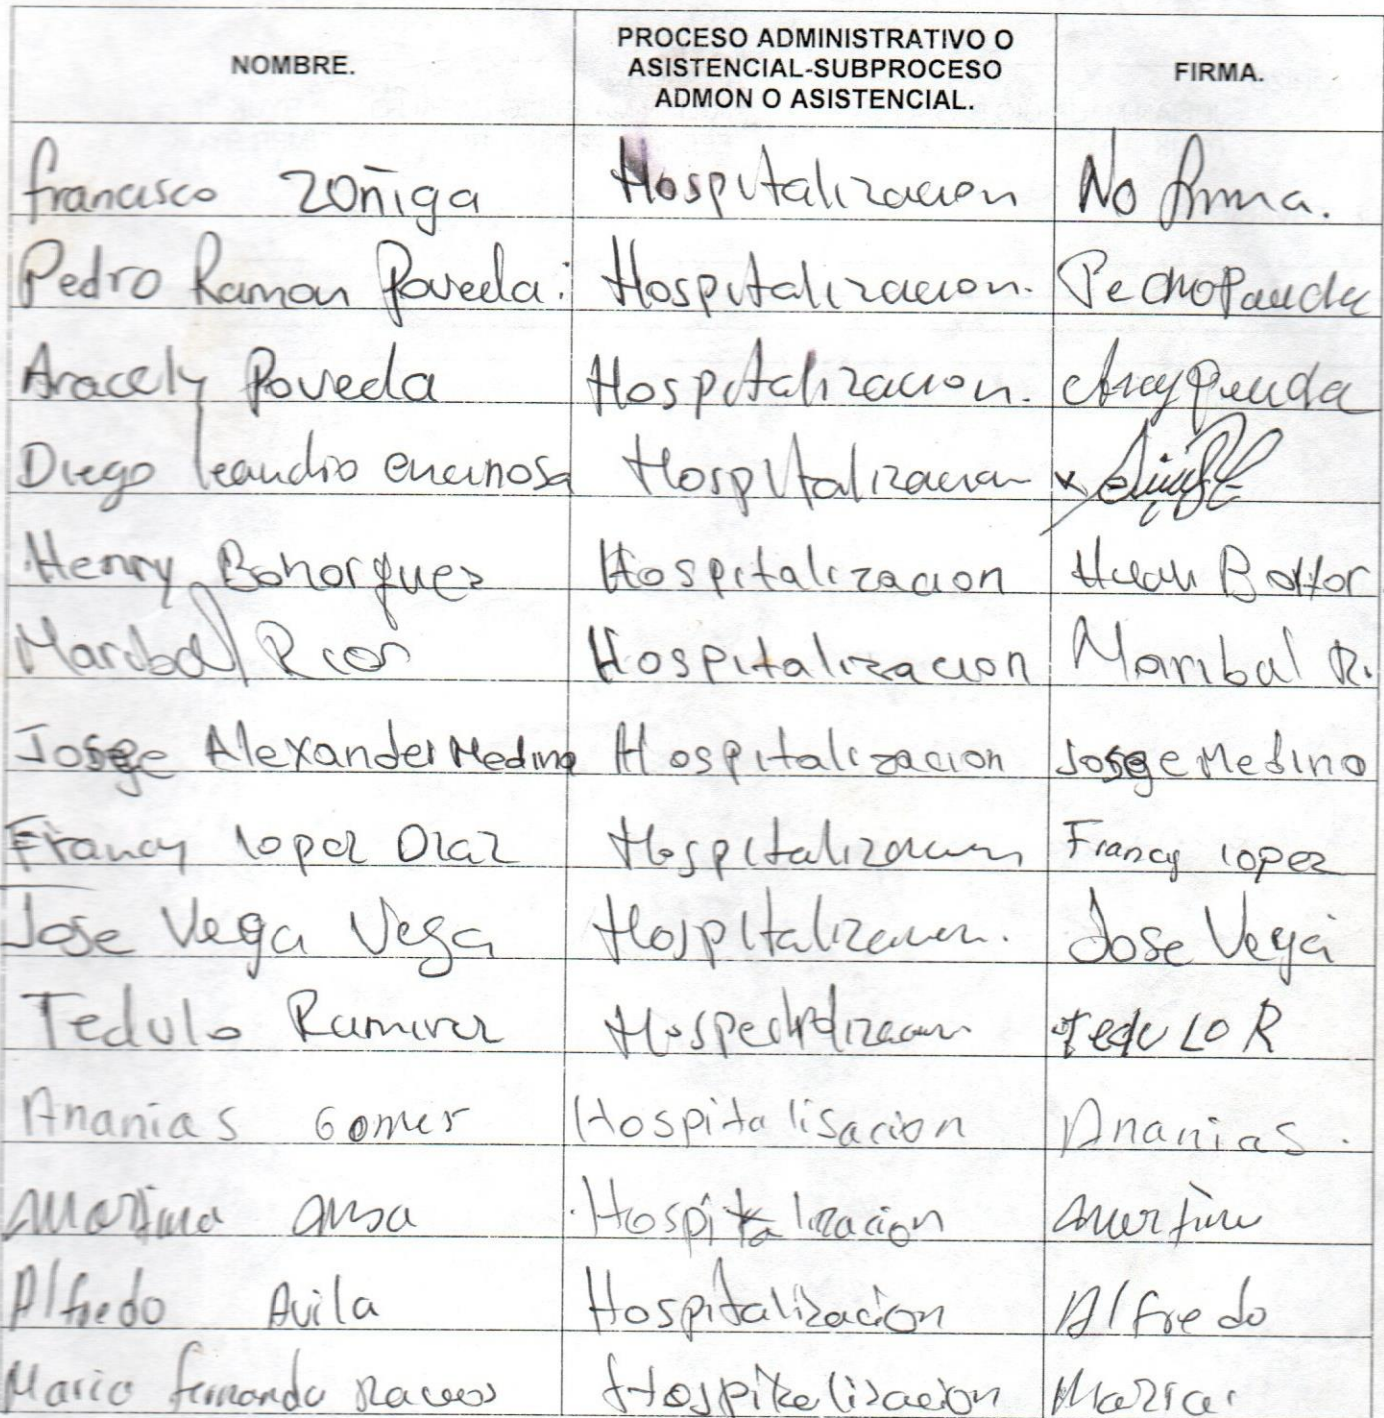 NOMBRE.
PROCESO ADMINISTRATIVO O
ASISTENCIAL-SUBPROCESO
ADMON O ASISTENCIAL.
FIRMA.
francisco ZOñiga Hospitalizacion No firma.
Pedro Ramon Poveda. Hospitalizacion.
Aracely Poveda Hospitalizacion.
Diego leandro encinosa Hospitalizacion x
Henry Bohorquez Hospitalizacion
Maribel Rios Hospitalizacion Maribal R.
Josge Alexander Medina Hospitalizacion Josge Medino
Francy lopez Diaz Hospitalizacion Francy lopez
Jose Vega Vega Hospitalizacion. Jose Vega
Tedulo Ramirez Hospitalizacion TeduLO R
Ananias Gomes Hospitalisacion Ananias.
Hospitalizacion
Alfredo Avila Hospitalizacion Alfredo
Mario fernando Hospitalizacion